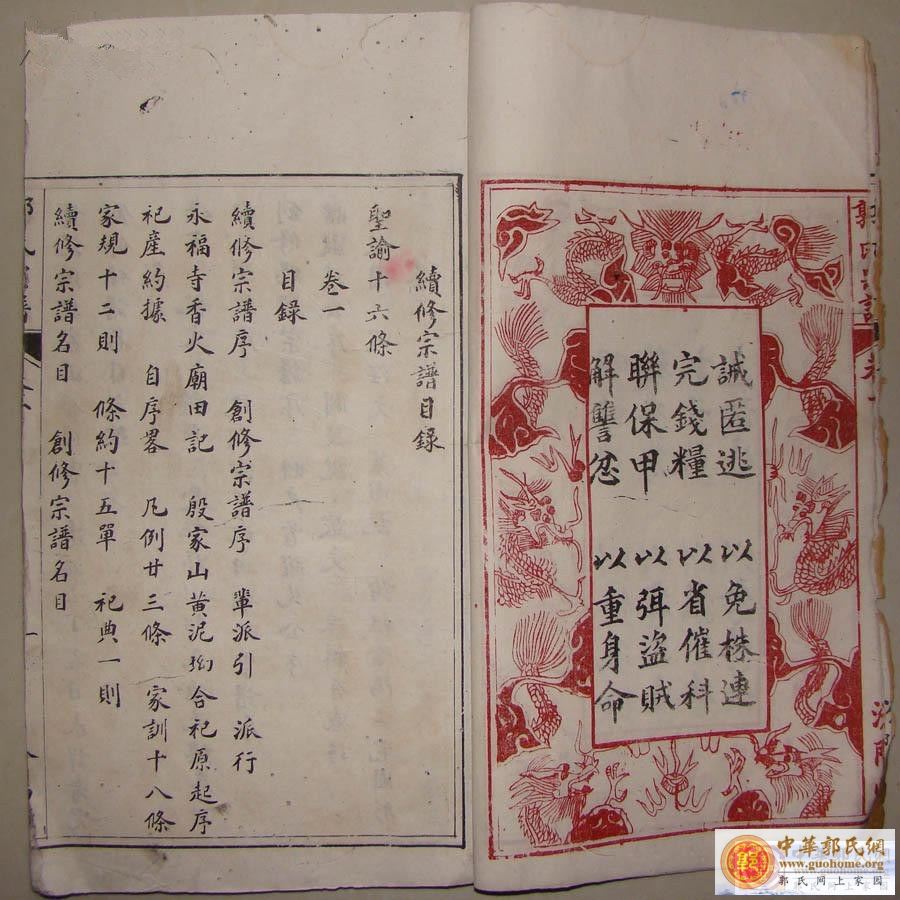 誡匿逃 以免株連
完錢糧 以省催科
聯保甲 以弭盜賊
解讐忿 以重身命
續修宗譜目錄
聖諭十六條
卷一
目錄
續修宗譜序 創修宗譜序 輩派引 派行
永福寺香火廟田記 殷家山黃泥㘭合祀原起序
祀產約據 自序畧 凡例廿三條 家訓十八條
家規十二則 條約十五單 祀典一則
續修宗譜名目 創修宗譜名目
中華郭氏網
www.guohome.org
郭氏网上家园